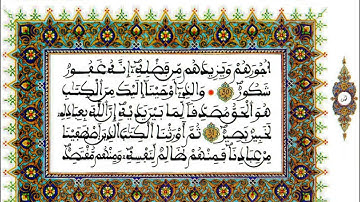 أُجُورَهُمْ وَيَزِيدَهُم مِّن فَضْلِهِۦٓ إِنَّهُۥ غَفُورٌ
شَكُورٌ وَالذِےٓ أَوْحَيْنَآ إِلَيْكَ مِنَ اَلْكِتَٰبِ
هُوَ اَلْحَقُّ مُصَدِّقاً لِّمَا بَيْنَ يَدَيْهِ إِنَّ اَللَّهَ بِعِبَادِهِۦ
لَخَبِيرٌۢ بَصِيرٌ ثُمَّ أَوْرَثْنَا اَلْكِتَٰبَ اَلذِينَ اَصْطَفَيْنَا
مِنْ عِبَادِنَا فَمِنْهُمْ ظَالِمٌ لِّنَفْسِهِۦ وَمِنْهُم مُّقْتَصِدٌ